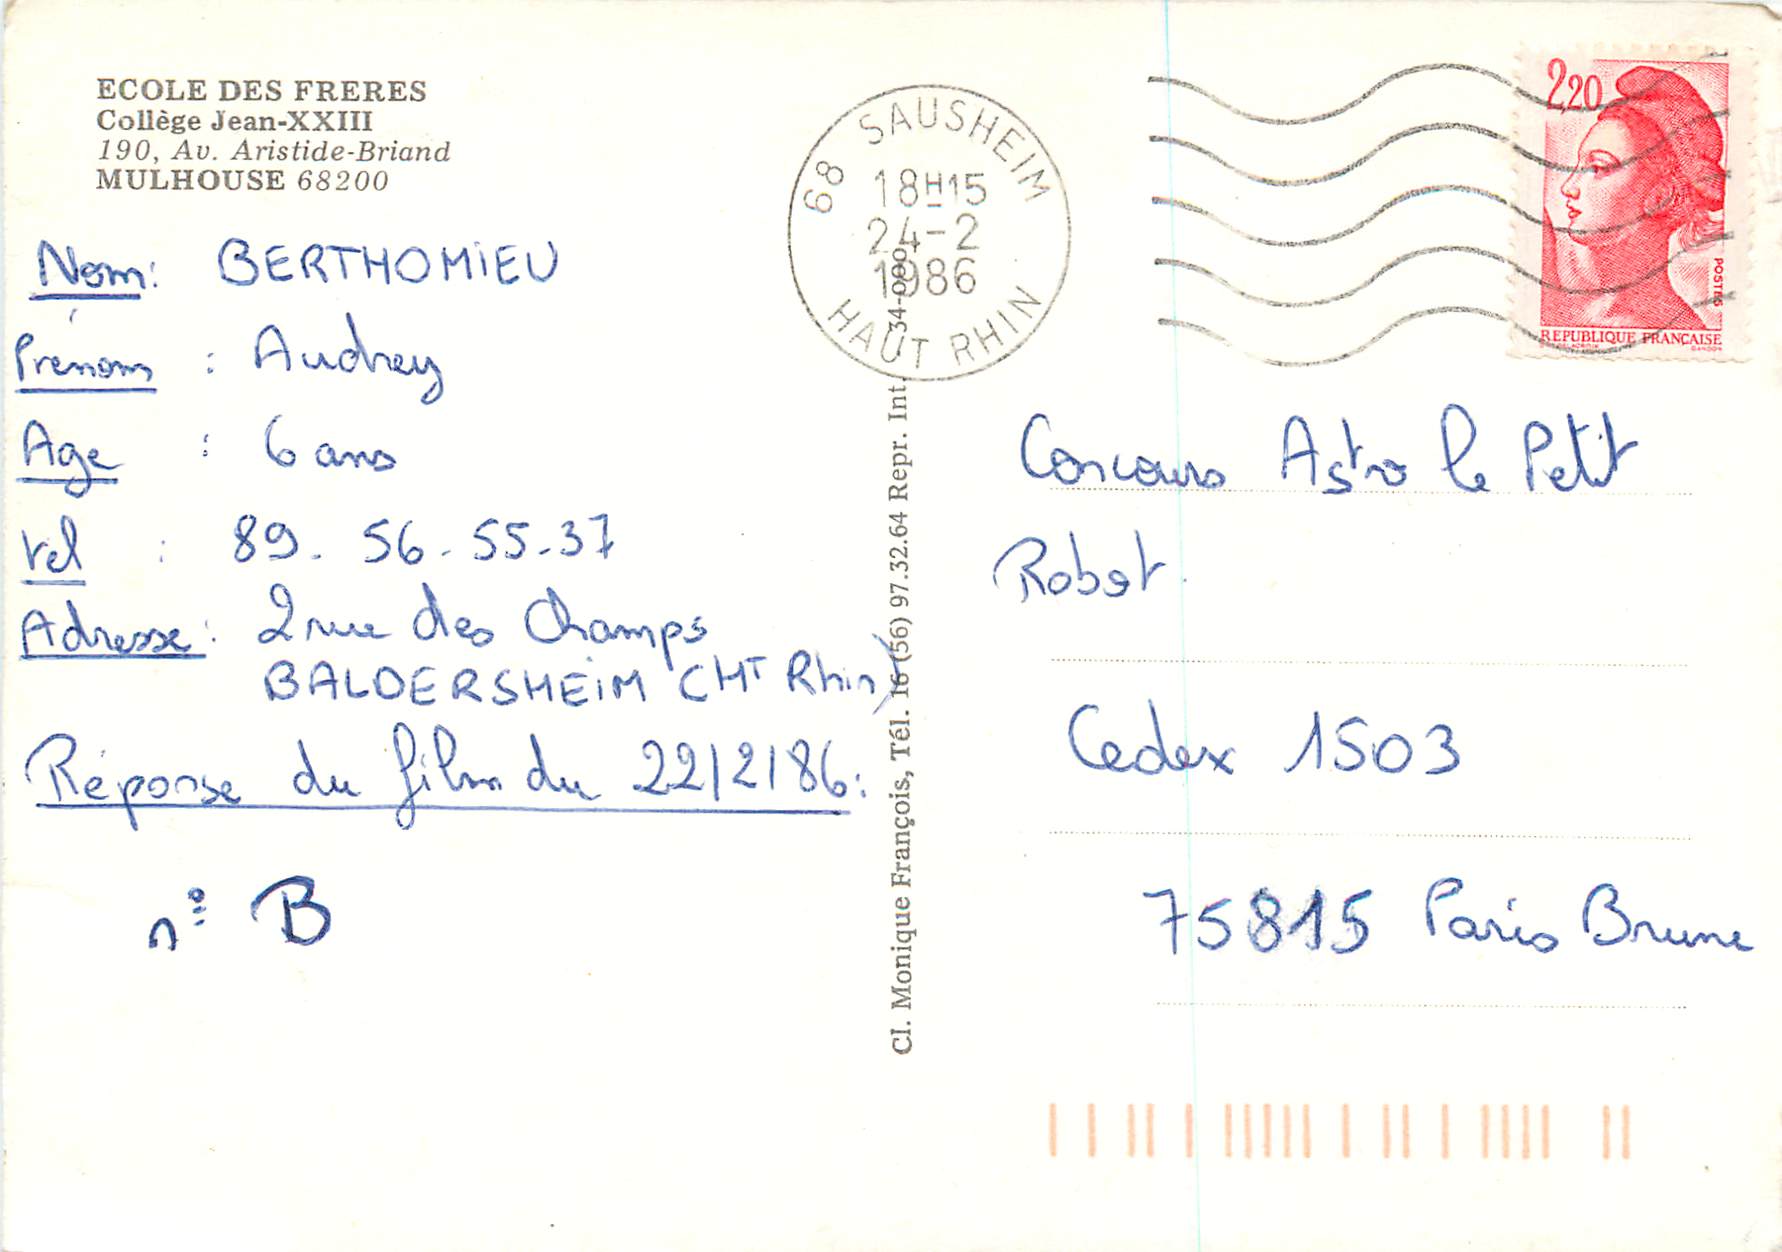 ECOLE DES FRERES
Collège Jean-XXIII
190, Av. Aristide-Briand
MULHOUSE 68200
Nom: BERTHOMiEU
Prénom : Audrey
Age : 6 ans
tel : 89. 56-55-37
Adresse: 2 rue des Champs
BALDERSHEiM (HT Rhin)
Réponse du film du 22/2/86:
n° B
Cl. Monique François, Tél. 16 (56) 97.32.64 Repr. Int.
68 SAUSHEIM
18H15
24-2
1986
HAUT RHIN
2,20
POSTES
REPUBLIQUE FRANÇAISE
GANDON
Concours Astro le Petit
Robot.
Cedex 1503
75815 Paris Brune